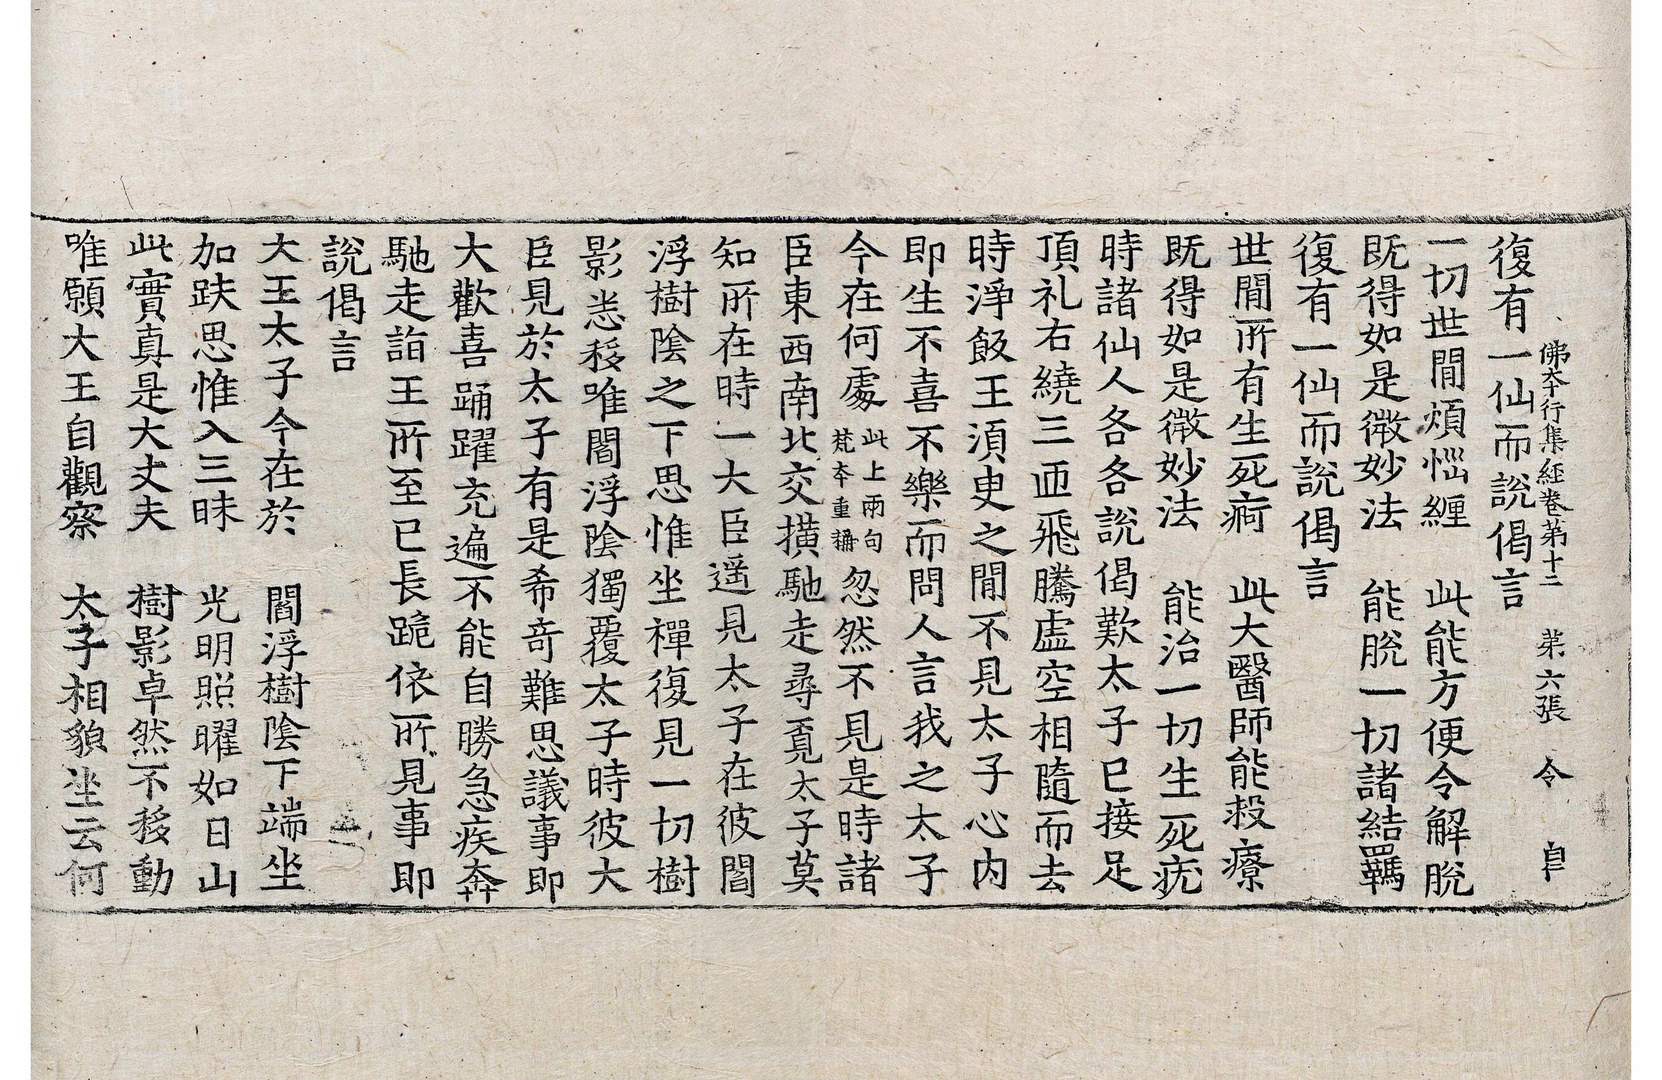 佛本行集經卷第十二　第六張　令　自
復有一仙而說偈言
一切世間煩惱纏　此能方便令解脫
既得如是微妙法　能脫一切諸結羈
復有一仙而說偈言
世間所有生死痾　此大醫師能救療
既得如是微妙法　能治一切生死疣
時諸仙人各各說偈歎太子已接足
頂礼右繞三匝飛騰虛空相隨而去
時淨飯王須臾之間不見太子心內
即生不喜不樂而問人言我之太子
今在何處此上兩句梵本重稱忽然不見是時諸
臣東西南北交撗馳走尋覓太子莫
知所在時一大臣遥見太子在彼閻
浮樹陰之下思惟坐禪復見一切樹
影悉移唯閻浮陰獨覆太子時彼大
臣見於太子有是希竒難思議事即
大歡喜踊躍充遍不能自勝急疾奔
馳走詣王所至已長跪依所見事即
說偈言
大王太子今在於　閻浮樹陰下端坐
加趺思惟入三昧　光明照曜如日山
此實真是大丈夫　樹影卓然不移動
唯願大王自觀察　太子相貌坐云何